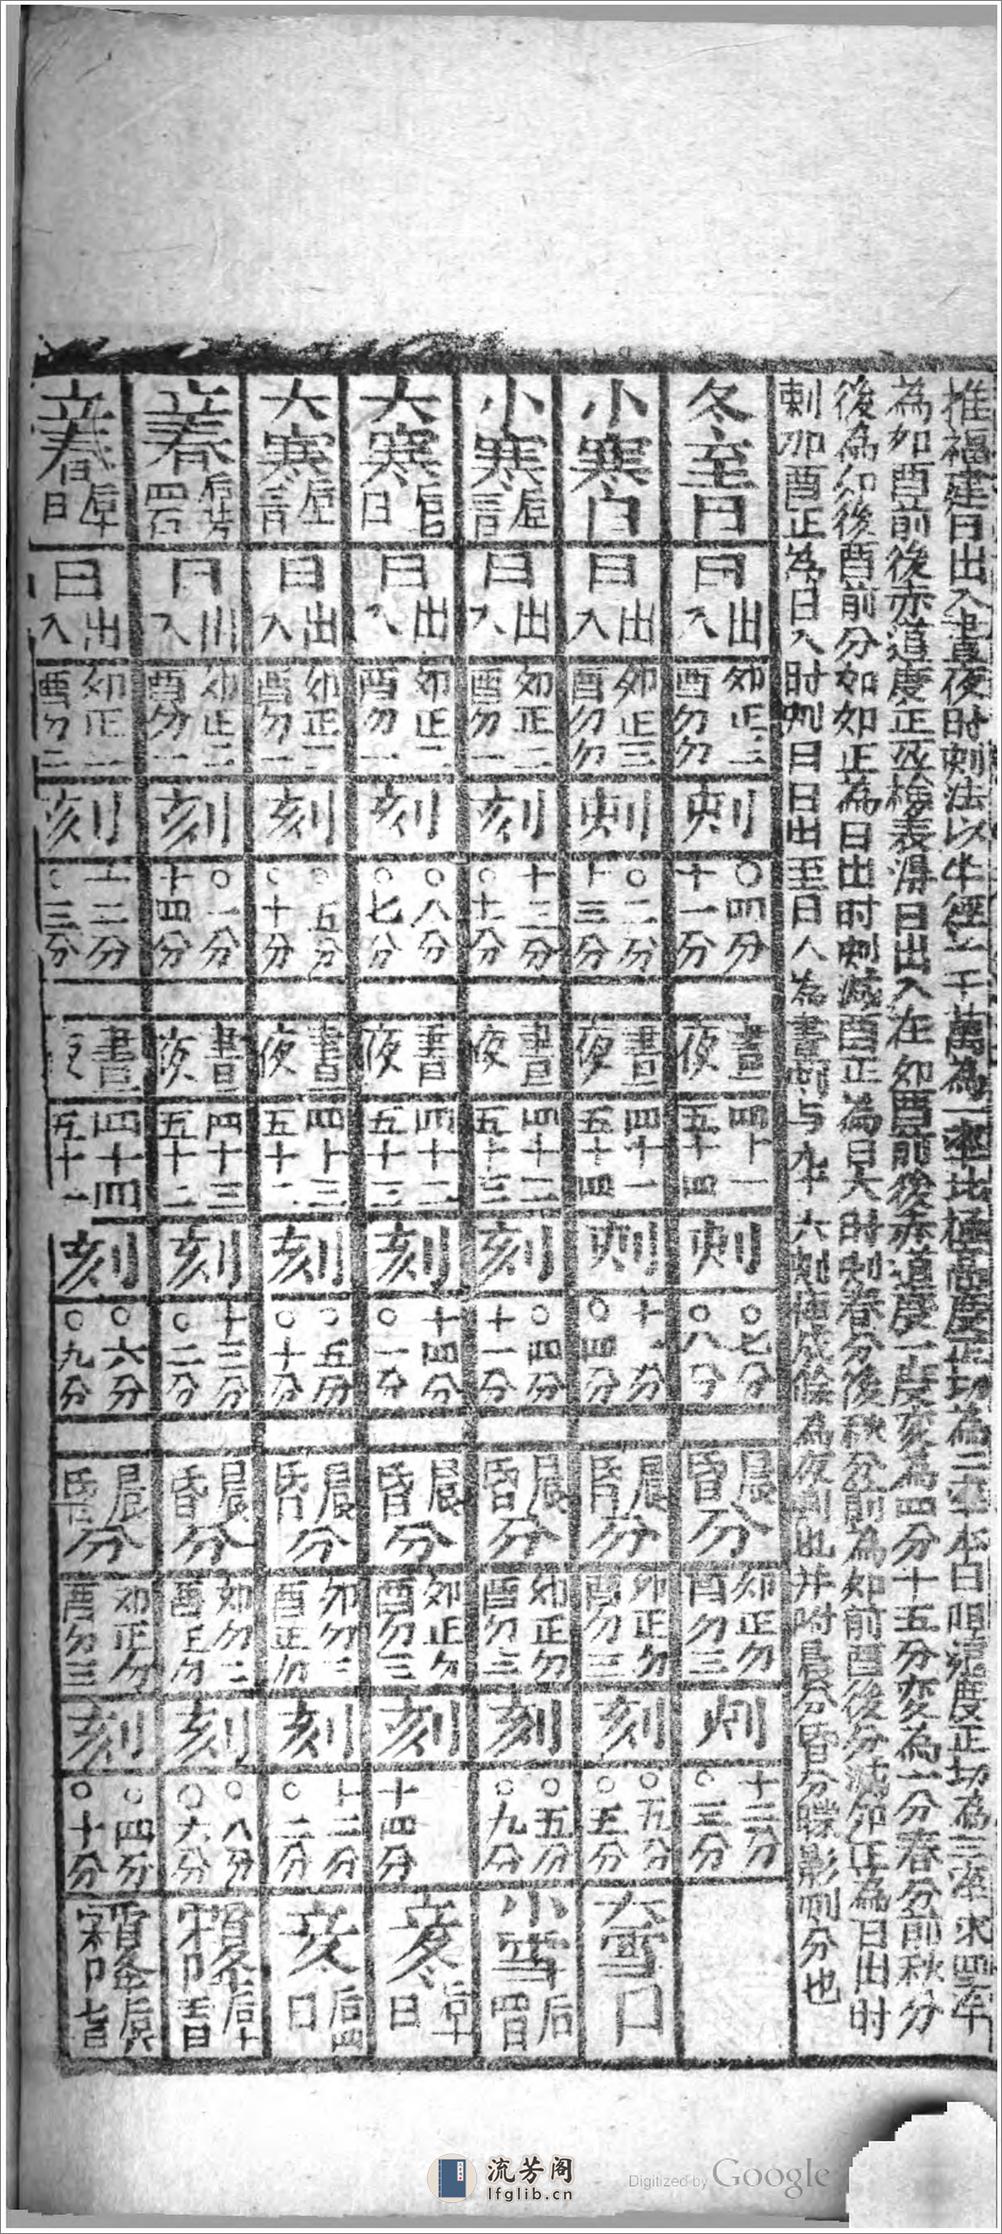 推福建日出入晝夜时刻法以半徑一千萬為一率北極高度正切為二率本日距緯度正切為三率求四率
為卯酉前後赤道度正弦檢表得日出入在卯酉前後赤道度一度変為四分十五分変為一分春分前秋分
後為卯後酉前分如卯正為日出时刻减酉正為日入时刻春分後秋分前為卯前酉後分减卯正為日出时
刻加酉正為日入时刻日出至日入為晝刻与九十六刻相减餘為夜刻也并附晨分昏分曚影刻分也
冬至日 日出入 卯正三 酉初 刻 〇四分 十一分 晝夜 四十一 五十四 刻 〇七分 〇八分 晨昏分 卯正初 酉初三 刻 十二分 〇三分
小寒日 日出入 卯正三 酉初 刻 〇二分 十三分 晝夜 四十一 五十四 刻 十一分 〇四分 晨昏分 卯正初 酉初三 刻 〇五分 大雪日
小寒 日出入 卯正二 酉初一 刻 十三分 晝夜 四十二 五十三 刻 〇四分 十一分 晨昏分 卯正初 酉初三 刻 〇五分 〇九分 小雪后四日
大寒日 日出入 卯正二 酉初一 刻 〇八分 〇七分 晝夜 四十二 五十三 刻 十四分 〇一分 晨昏分 卯正初 酉初三 刻 十四分 立冬日
大寒 日出入 卯正二 酉初一 刻 〇五分 〇十分 晝夜 四十三 五十二 刻 〇五分 〇十分 晨昏分 卯初三 酉正初 刻 十二分 〇二分 立冬日
立春 日出入 卯正二 酉初一 刻 〇一分 十四分 晝夜 四十三 五十二 刻 十三分 〇二分 晨昏分 卯初三 酉正初 刻 〇八分 〇六分 霜降
立春日 日出入 卯正一 酉初二 刻 十二分 〇三分 晝夜 四十四 五十一 刻 〇六分 〇九分 晨昏分 刻 〇四分 〇十分 霜降
流芳阁
lfglib.cn
Digitized by Google